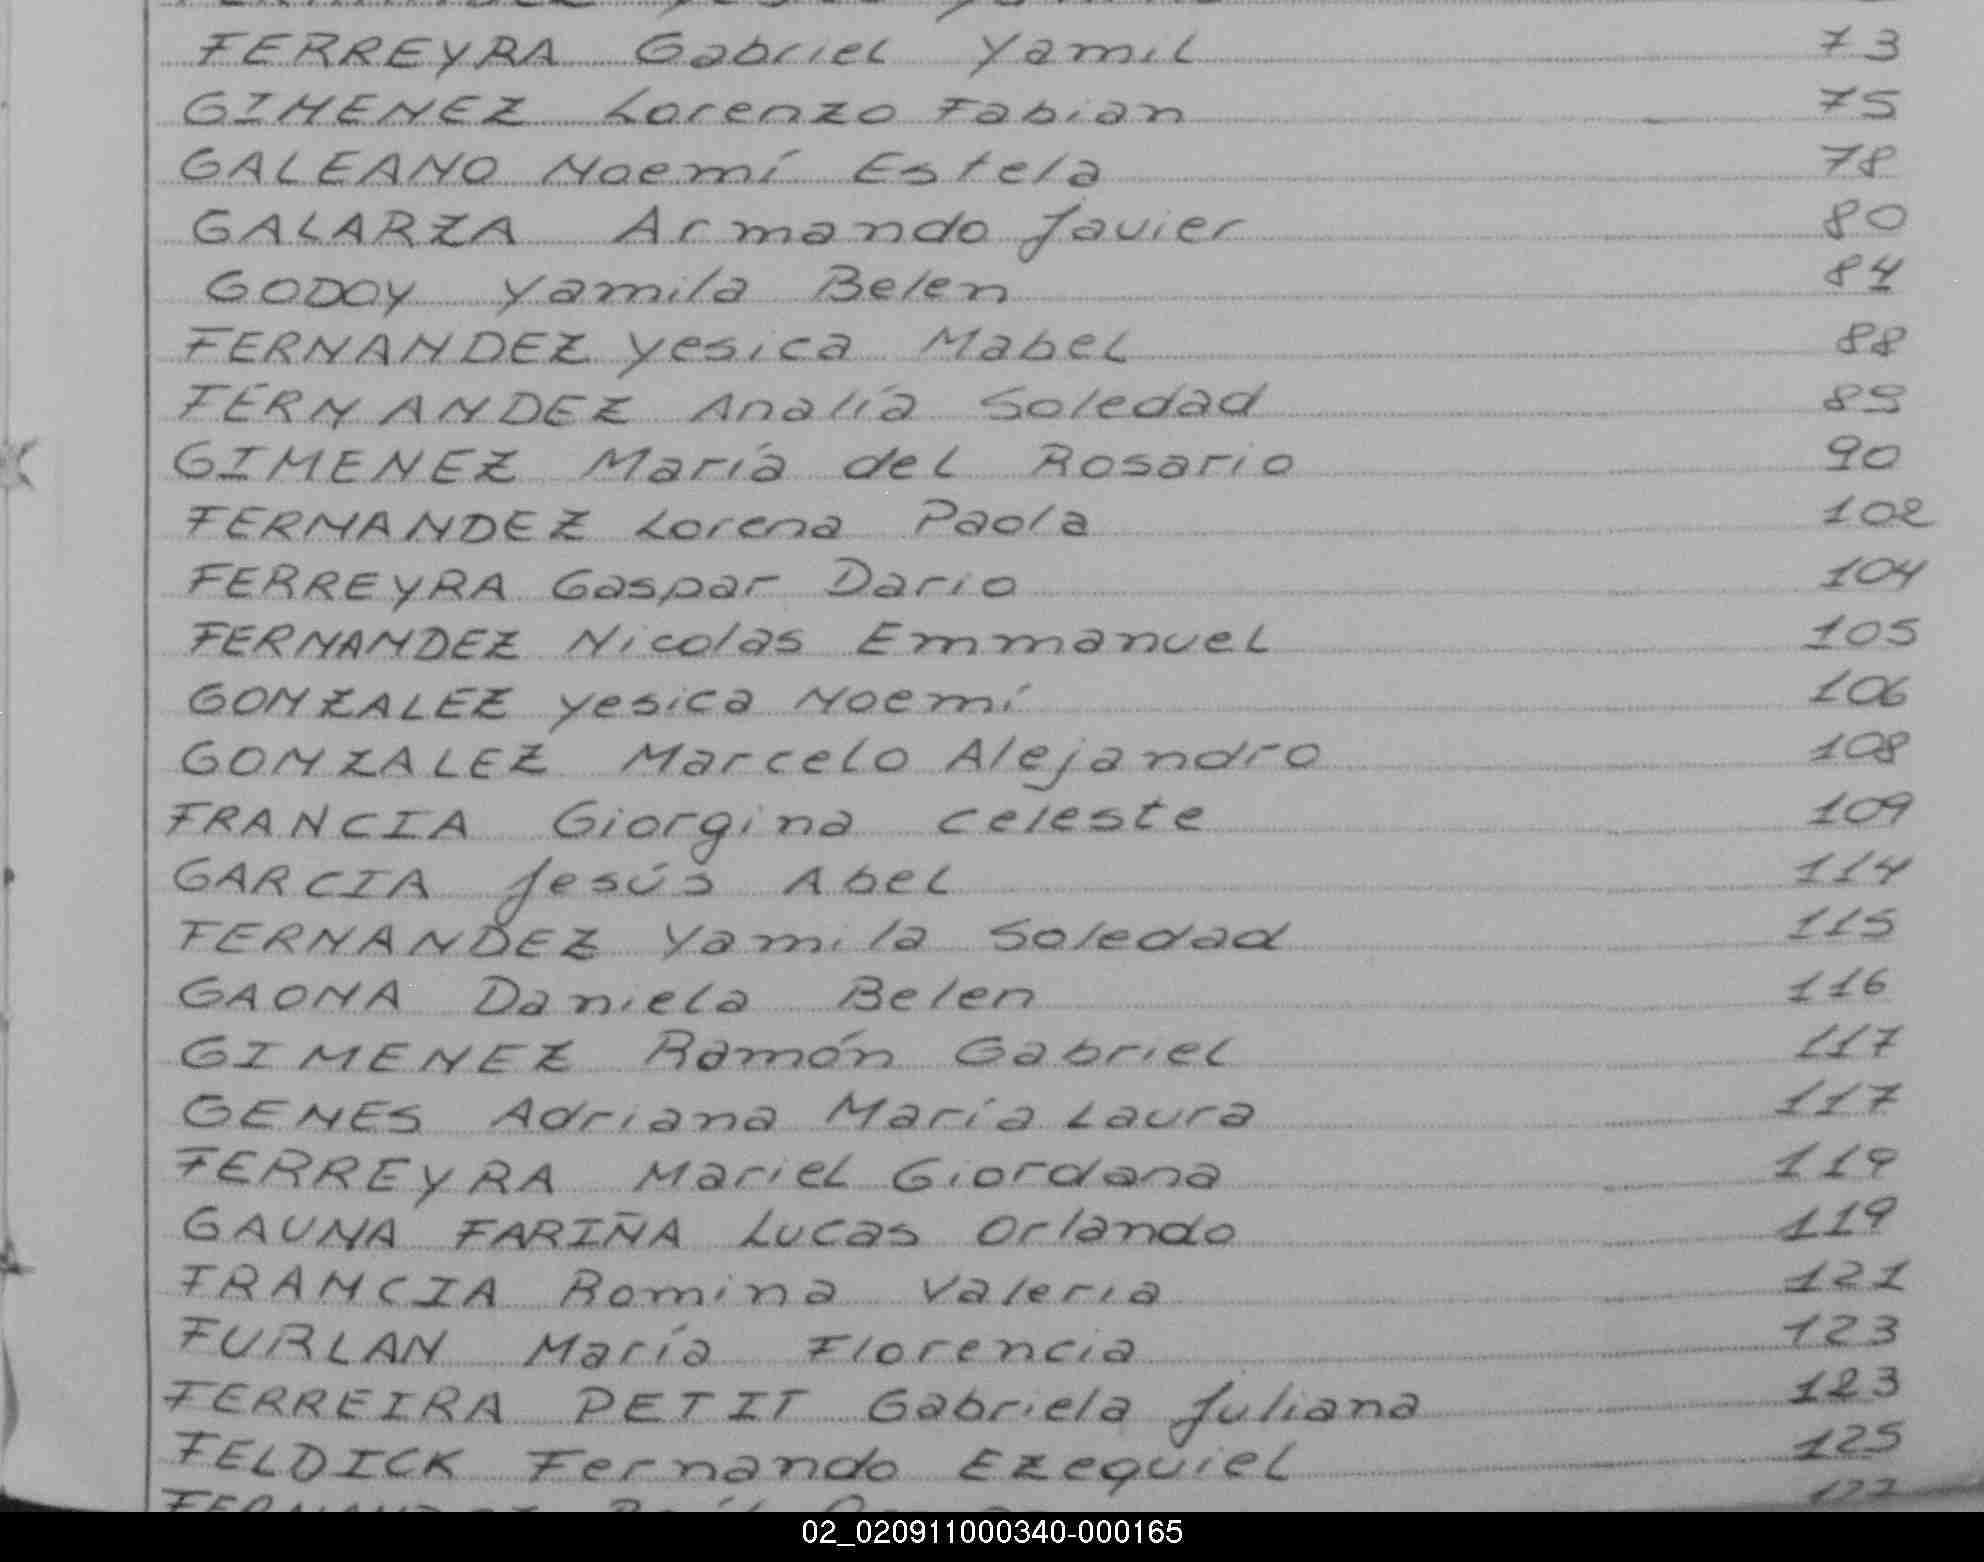 FERREYRA Gabriel Yamil 73
GIMENEZ Lorenzo Fabian 75
GALEANO Noemí Estela 78
GALARZA Armando Javier 80
GODOY Yamila Belen 84
FERNANDEZ Yesica Mabel 88
FERNANDEZ Analía Soledad 89
GIMENEZ María del Rosario 90
FERNANDEZ Lorena Paola 102
FERREYRA Gaspar Dario 104
FERNANDEZ Nicolas Emmanuel 105
GONZALEZ Yesica Noemí 106
GONZALEZ Marcelo Alejandro 108
FRANCIA Giorgina Celeste 109
GARCIA Jesús Abel 114
FERNANDEZ Yamila Soledad 115
GAONA Daniela Belen 116
GIMENEZ Ramón Gabriel 117
GENES Adriana María Laura 117
FERREYRA Mariel Giordana 119
GAUNA FARIÑA Lucas Orlando 119
FRANCIA Romina Valeria 121
FURLAN María Florencia 123
FERREIRA PETIT Gabriela Juliana 123
FELDICK Fernando Ezequiel 125
02_020911000340-000165